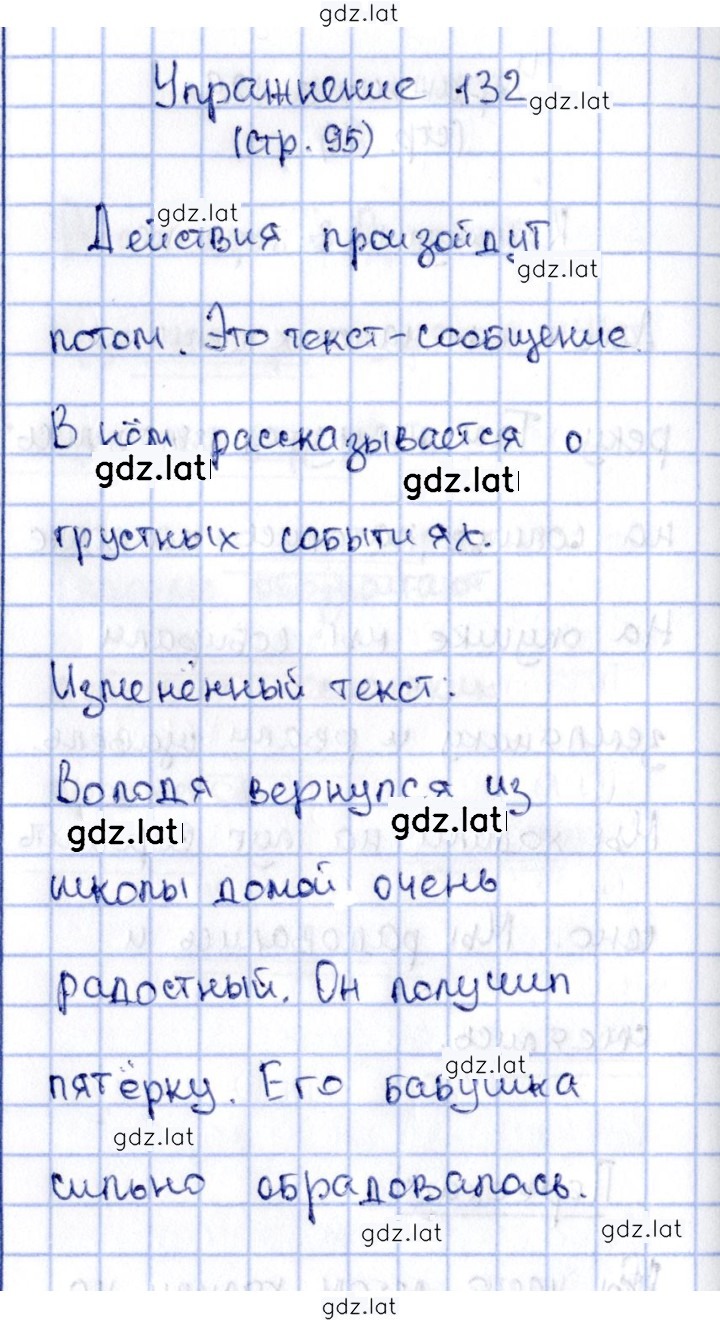 gdz.lat
Упражнение 132
gdz.lat
(стр. 95)
gdz.lat
Действия произойдут
gdz.lat
потом. Это текст-сообщение.
В нём рассказывается о
gdz.lat
gdz.lat
грустных событиях.
Изменённый текст:
Володя вернулся из
gdz.lat
gdz.lat
школы домой очень
радостный. Он получил
gdz.lat
пятёрку. Его бабушка
gdz.lat
сильно обрадовалась.
gdz.lat
gdz.lat
gdz.lat